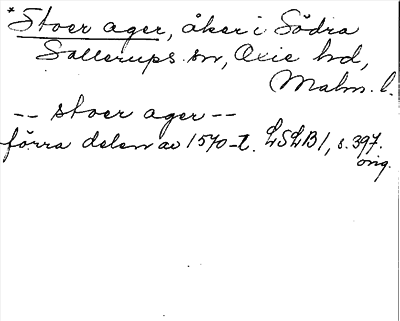 *Stoer ager, åker i Södra
Sallerups sn, Oxie hd,
Malm. l.
-- stoer ager --
förra delen av 1570-t. LSLB 1, s. 397.
orig.